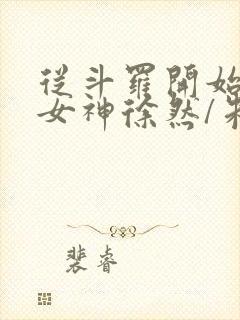 從斗羅開始
女神徐然/
裴睿